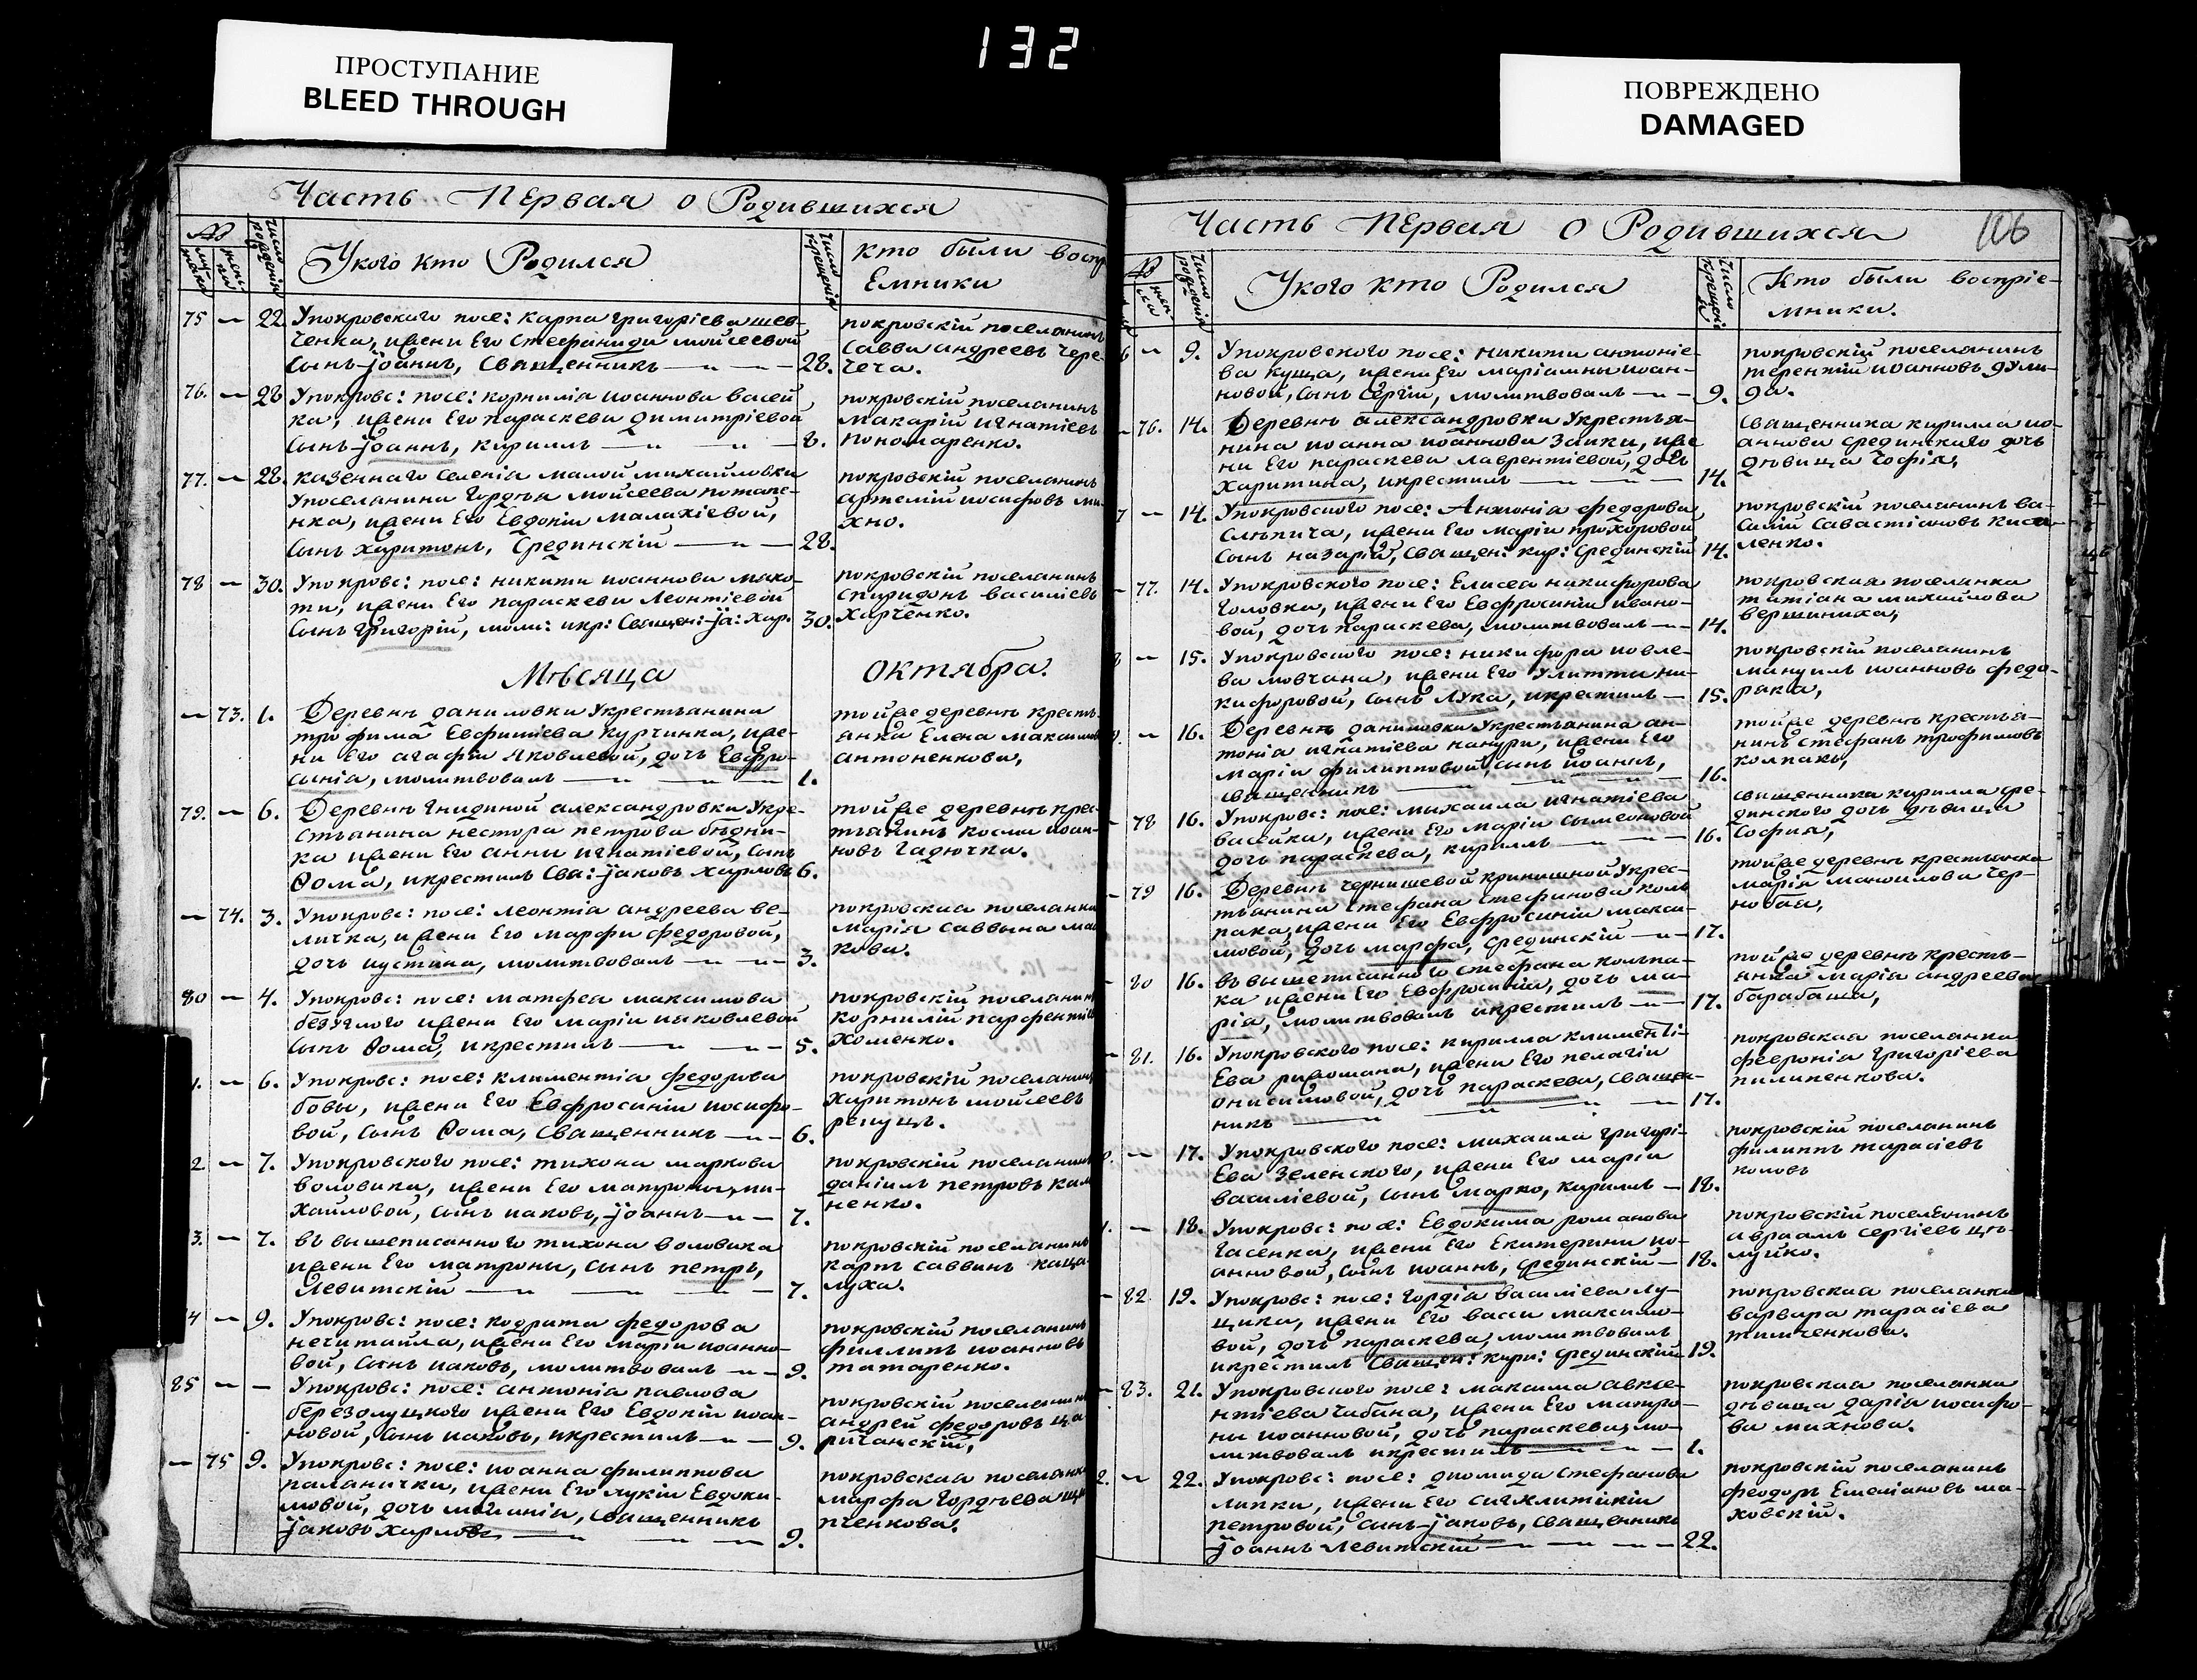 132
ПРОСТУПАНИЕ
BLEED THROUGH
ПОВРЕЖДЕНО
DAMAGED
Часть Первая о Родившихся
Число рожденія
У кого кто Родился
Число крещенія
кто были воспр
Емники
75 — 22. Упокровскаго посе: карпа григоріева шев-
ченка, ижени Его стефаниди мойсеевой
сынъ іоаннъ, Священникъ — 28.
покровскій поселанинъ
савва андреевъ чере-
чеча.
76. — 28 Упокровс: посе: корнилія иоаннова васей
ка, ижени Его параскеви димитріевой
сынъ іоаннъ, кириллъ — 8.
покровскій поселанинъ
макарій игнатіевъ
пономаренко.
77. — 28. казеннаго селенія малой михайловки
Упоселанина гордѣя мойсеева потапе-
нка, ижени Его Евдокіи малахіевой,
сынъ харитонъ, Срединскій — 28.
покровскій поселанинъ
артемій иосифовъ ми-
хно.
78 — 30. Упокровс: посе: никити иоаннова мако-
ти, ижени Его параскеви леонтіевой
сынъ григорій, моли: икр: Священ: іа: Хар. 30.
покровскій поселанинъ
спиридонъ василіевъ
харченко.
Мѣсяца Октября.
— 73. 1. Деревнѣ даниловки Укрестьанина
трофима Евфиміева курчинка, иже-
ни Его агафіи яковлевой, дочь Евфро-
сынія, молитвовалъ — 1.
тойже деревнѣ кресть-
анка Елена максимов
антоненкова,
79. — 6. Деревнѣ гнидиной александровки Укре-
стьанина нестора петрова бѣдни-
ка ижени Его анны игнатіевой, сынъ
Ѳома, икрестилъ Свя: іаковъ харловъ 6.
тойже деревнѣ крес-
тьанинъ косма иоан-
новъ гадючка.
— 74. 3. Упокровс: посе: леонтіа андреева ве-
личка, ижени Его марфи федоровой,
дочь иустина, молитвовалъ — 3.
покровскаа поселанка
марія саввина ма
кова.
80 — 4. Упокровс: посе: матфеа максимова
безуглого ижени Его маріи иаковлевой
сынъ Ѳома, икрестилъ — 5.
покровскій поселанинъ
корнилій парфентіе
хоменко.
1. — 6. Упокровс: посе: климентіа федорова
бобы, ижени Его Евфросиніи иосифо-
вой, сынъ Ѳома, священникъ — 6.
покровскій поселанинъ
харитонъ мойсеевъ
репуцъ.
2 — 7. Упокровского посе: тихона маркова
воловика, ижени Его матроны ми-
хайловой, сынъ иаковъ, іоаннъ — 7.
покровскій поселанинъ
даніилъ петровъ кам
ненко.
3. — 7. въ вышеписанного тихона воловика
ижени Его матроны, сынъ петръ,
Левитскій — 7.
покровскій поселанинъ
карпъ саввинъ каца
луха.
4 — 9. Упокровс: посе: кодрата федорова
нечитайла, ижени Его маріи иоанно-
вой, сынъ иаковъ, молитвовалъ — 9.
покровскій поселанинъ
филлипъ иоанновъ
татаренко.
85 — — Упокровс: посе: антоніа павлова
березолуцкого ижени Его Евдокіи иоан-
новой, сынъ иаковъ, икрестилъ — 9.
покровскій поселанинъ
андрей федоровъ ца
ричанскій,
— 75 9. Упокровс: посе: иоанна филиппова
паланички, ижени Его лукіи Евдоки-
мовой, дочь меланіа, священникъ
іаковъ харловъ — 9.
покровскаа поселанка
марфа гордѣева щи
пченкова.
Часть Первая о Родившихся
106
Число рожденія
У кого кто Родился
Число крещені
Кто были воспріе-
мники.
6 — 9. Упокровского посе: никити антоніе-
ва куща, ижени Его маріамны иоан-
новой, сынъ сергій, молитвовалъ — 9.
покровскій поселанинъ
терентій иоанновъ дули-
да.
— 76. 14. Деревнѣ александровки Укрестья-
нина иоанна иоаннова заики, иже
ни Его параскеви лаврентіевой, дочь
харитина, икрестилъ — 14.
священника кирилла ио-
аннова срединского дочь
дѣвица софія,
7 — 14. Упокровского посе: Антоніа федорова
слѣпича, ижени Его маріи прохоровой
сынъ назарій, Священ: кир: Срединскій 14.
покровскій поселанинъ ва-
силій савастіановъ киси-
ленко.
— 77. 14. Упокровского посе: Елисеа никифорова
головка, ижени Его Евфросиніи ивано-
вой, дочь параскева, молитвовалъ — 14.
покровская поселанка
татіана михайлова
вершиниха,
8 — 15. Упокровского посе: никифора иовле-
ва мовчана, ижени Его Улитти ни-
кифоровой, сынъ Лука, икрестилъ — 15.
покровскій поселанинъ
мануилъ иоанновъ федо-
рака,
9. — 16. Деревнѣ даниловки Укрестьанина ан-
тоніа игнатіева канури, ижени Его
маріи филипповой, сынъ иоаннъ,
священникъ — 16.
тойже деревнѣ крестьа-
нинъ стефанъ трофимовъ
колпакъ,
— 78 16. Упокровс: посе: михаила игнатіева
васейка, ижени Его маріи сымеоновой
дочь параскева, кириллъ — 16.
священника кирилла сре-
динского дочь дѣвица
софия,
— 79 16. Деревнѣ чернишевой криничной Укрес-
тьанина стефана стефанова кол
пака, ижени Его Евфросиніи макси-
мовой, дочь марфа, Срединскій — 17.
тойже деревнѣ крестьанка
марія мануилова чер-
новаа,
— 80 16. въ вышеписанного стефана колпа-
ка ижени Его Евфросиніи, дочь ма-
рія, молитвовалъ икрестилъ — 17.
тойже деревнѣ кресть-
анка марія андреева
барабаша,
— 81. 16. Упокровского посе: кирилла климентi-
Ева римошана, ижени Его пелагіи
онисимовой, дочь параскева, священ-
никъ — 17.
покровскаа поселанка
февроніа григоріева
пилипенкова.
0. — 17. Упокровского посе: михаила григорі-
Ева зеленского, ижени Его маріи
василіевой, сынъ марко, кириллъ — 18.
покровскій поселанинъ
филиппъ тарасіевъ
коловъ
1. — 18. Упокровс: посе: Евдокима романова
гасенка, ижени Его Екатерини ио-
анновой, сынъ иоаннъ, срединскій — 18.
покровскій поселѣнинъ
авраамъ сергіевъ цѣ-
луйко.
— 82 19. Упокровс: посе: гордіа василіева лу-
щика, ижени Его васси максимо-
вой, дочь параскева, молитвовалъ
икрестилъ Священ: кири: срединскій 19.
покровскаа поселанка
варвара тарасіева
тимченкова.
— 83. 21. Упокровского посе: максима авксе-
нтіева чабана, ижени Его матро-
ни иоанновой, дочь параскева, мо-
литвовалъ икрестилъ — 1.
покровскаа поселанка
дѣвица даріа иосифо-
ва михнова.
2. — 22. Упокровс: посе: диомида стефанова
липки, ижени Его сигклитикіи
петровой, сынъ іаковъ, священникъ
іоаннъ Левитскій — 22.
покровскій поселанинъ
феодоръ Емеліановъ ма-
ховскій.